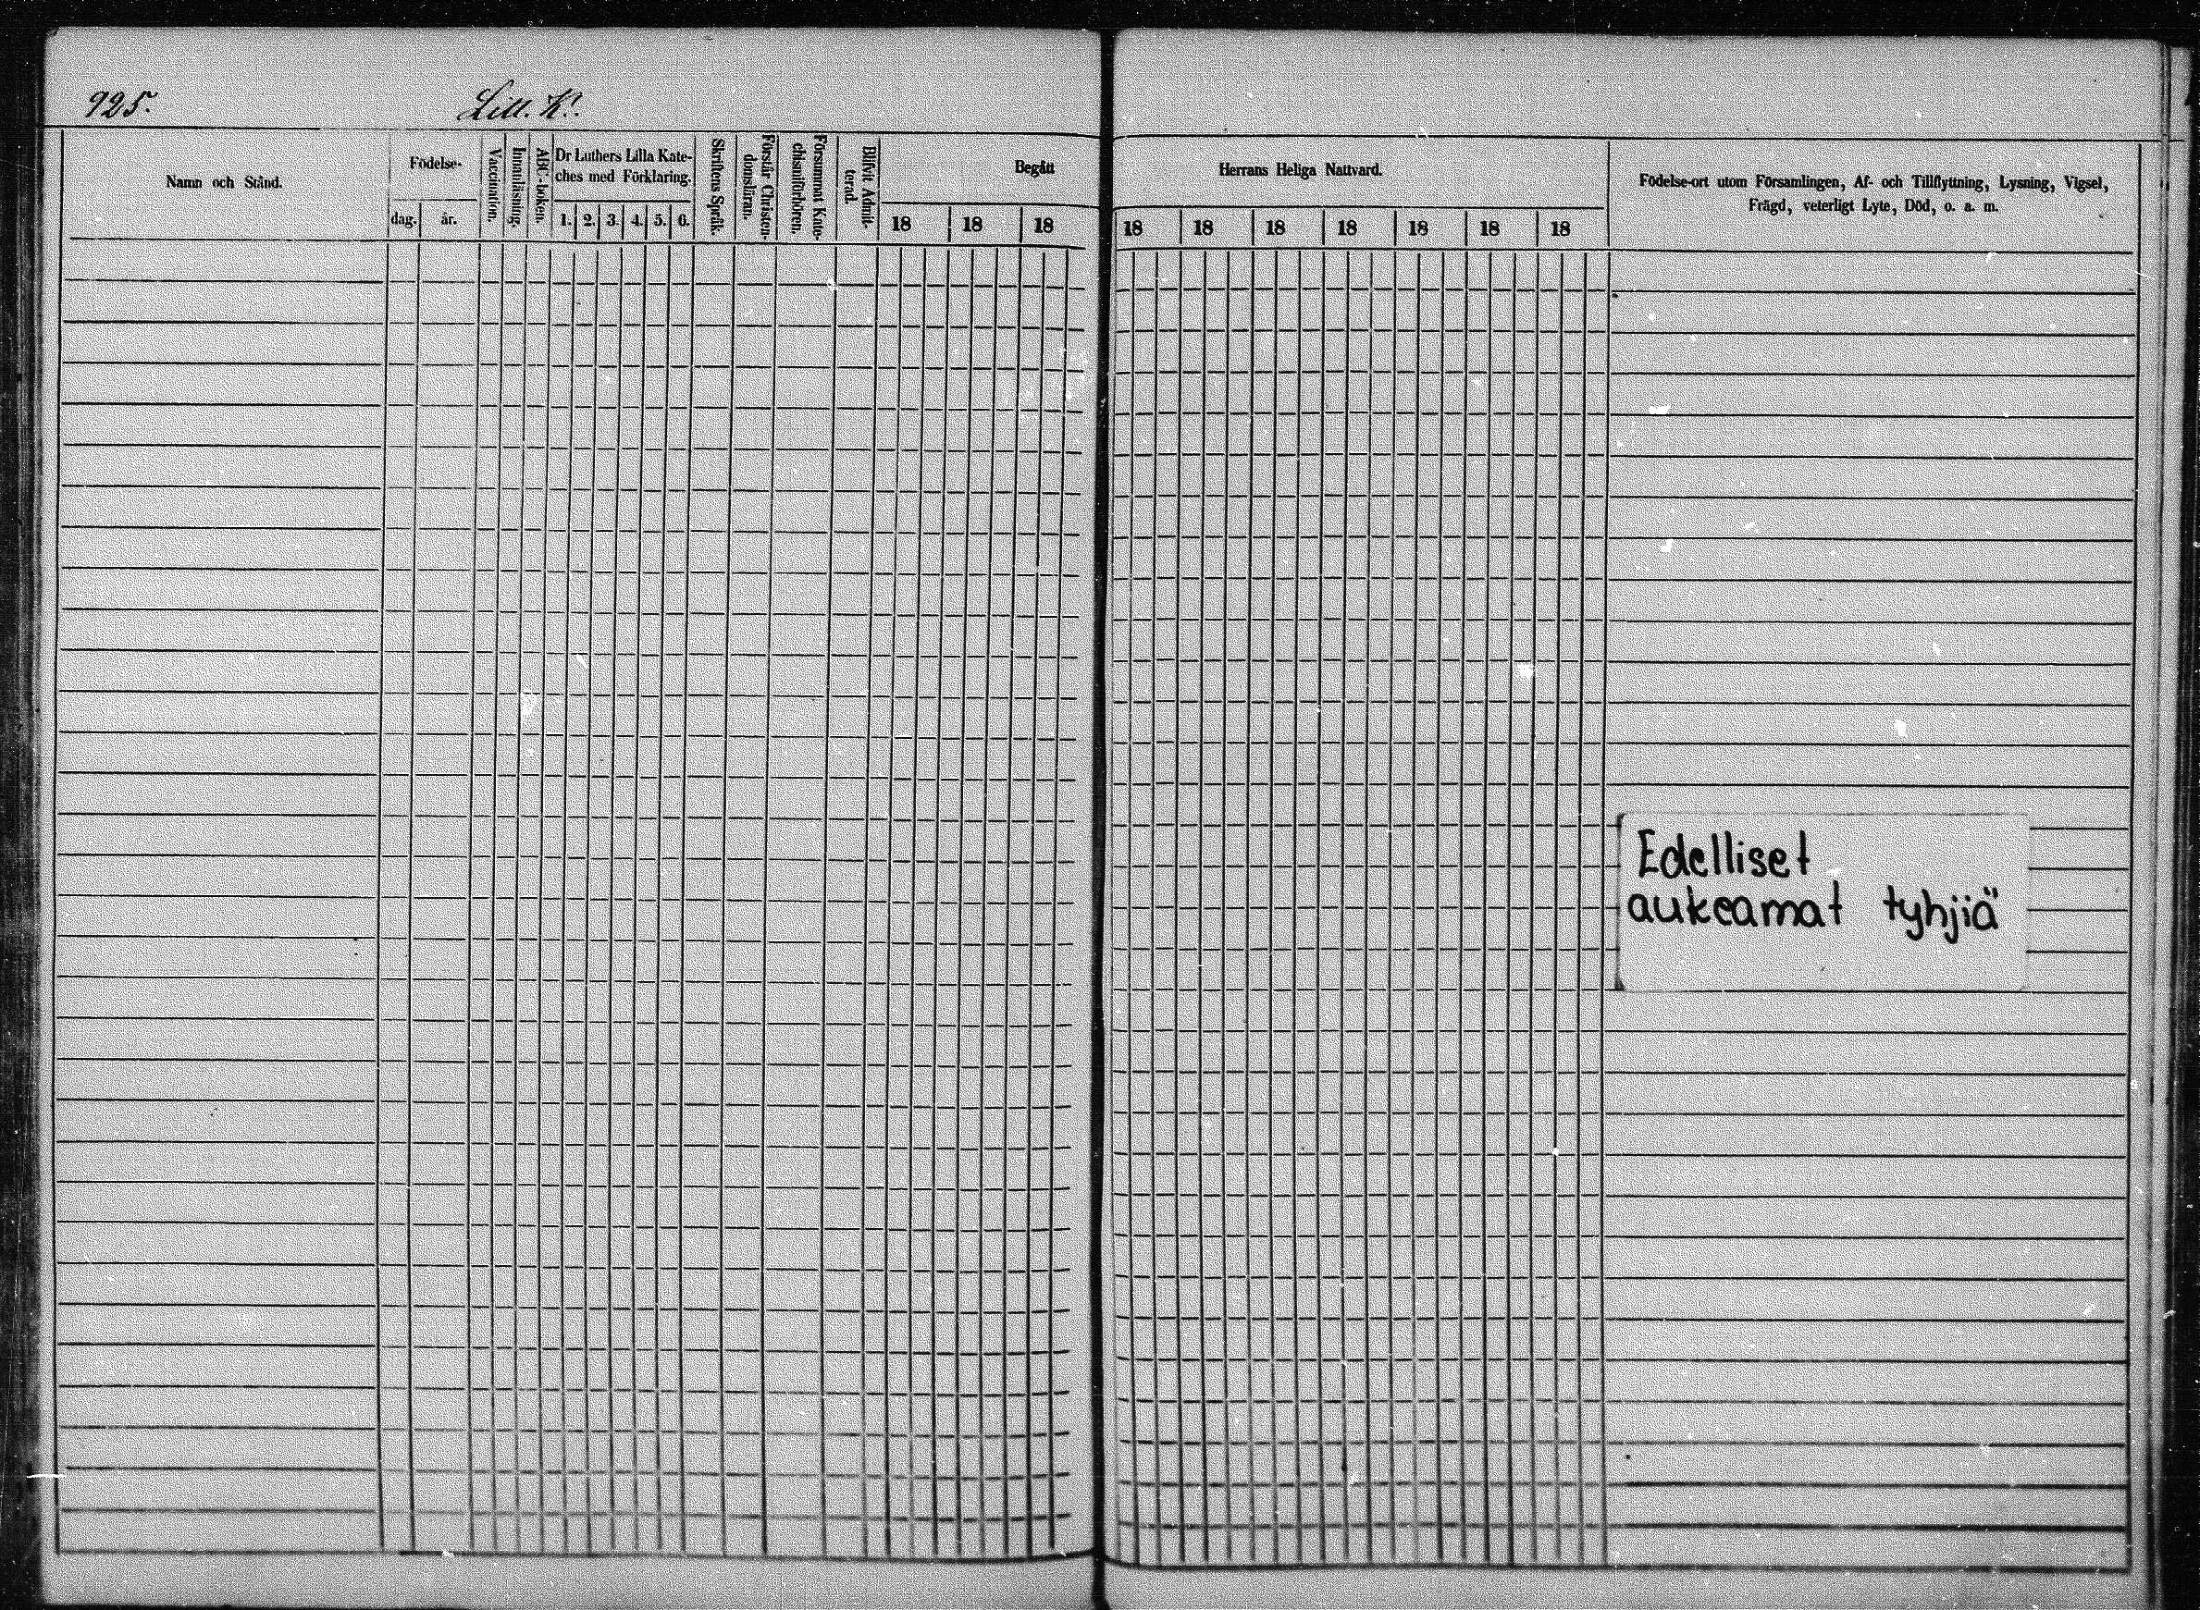 925.
Litt. K!
Namn och Stånd.
Födelse-
dag.
år.
Vaccination.
Innanläsning.
ABC-boken.
Dr Luthers Lilla Kate-
ches med Förklaring.
1. 2. 3. 4. 5. 6.
Skriftens Språk.
Förstår Christen-
domsläran.
Försummat Kate-
chismiförhören.
Blifvit Admit-
terad.
Begått
18 18 18
Herrans Heliga Nattvard.
18 18 18 18 18 18 18
Födelse-ort utom Församlingen, Af- och Tillflyttning, Lysning, Vigsel,
Frägd, veterligt Lyte, Död, o. a. m.
Edelliset
aukeamat tyhjiä